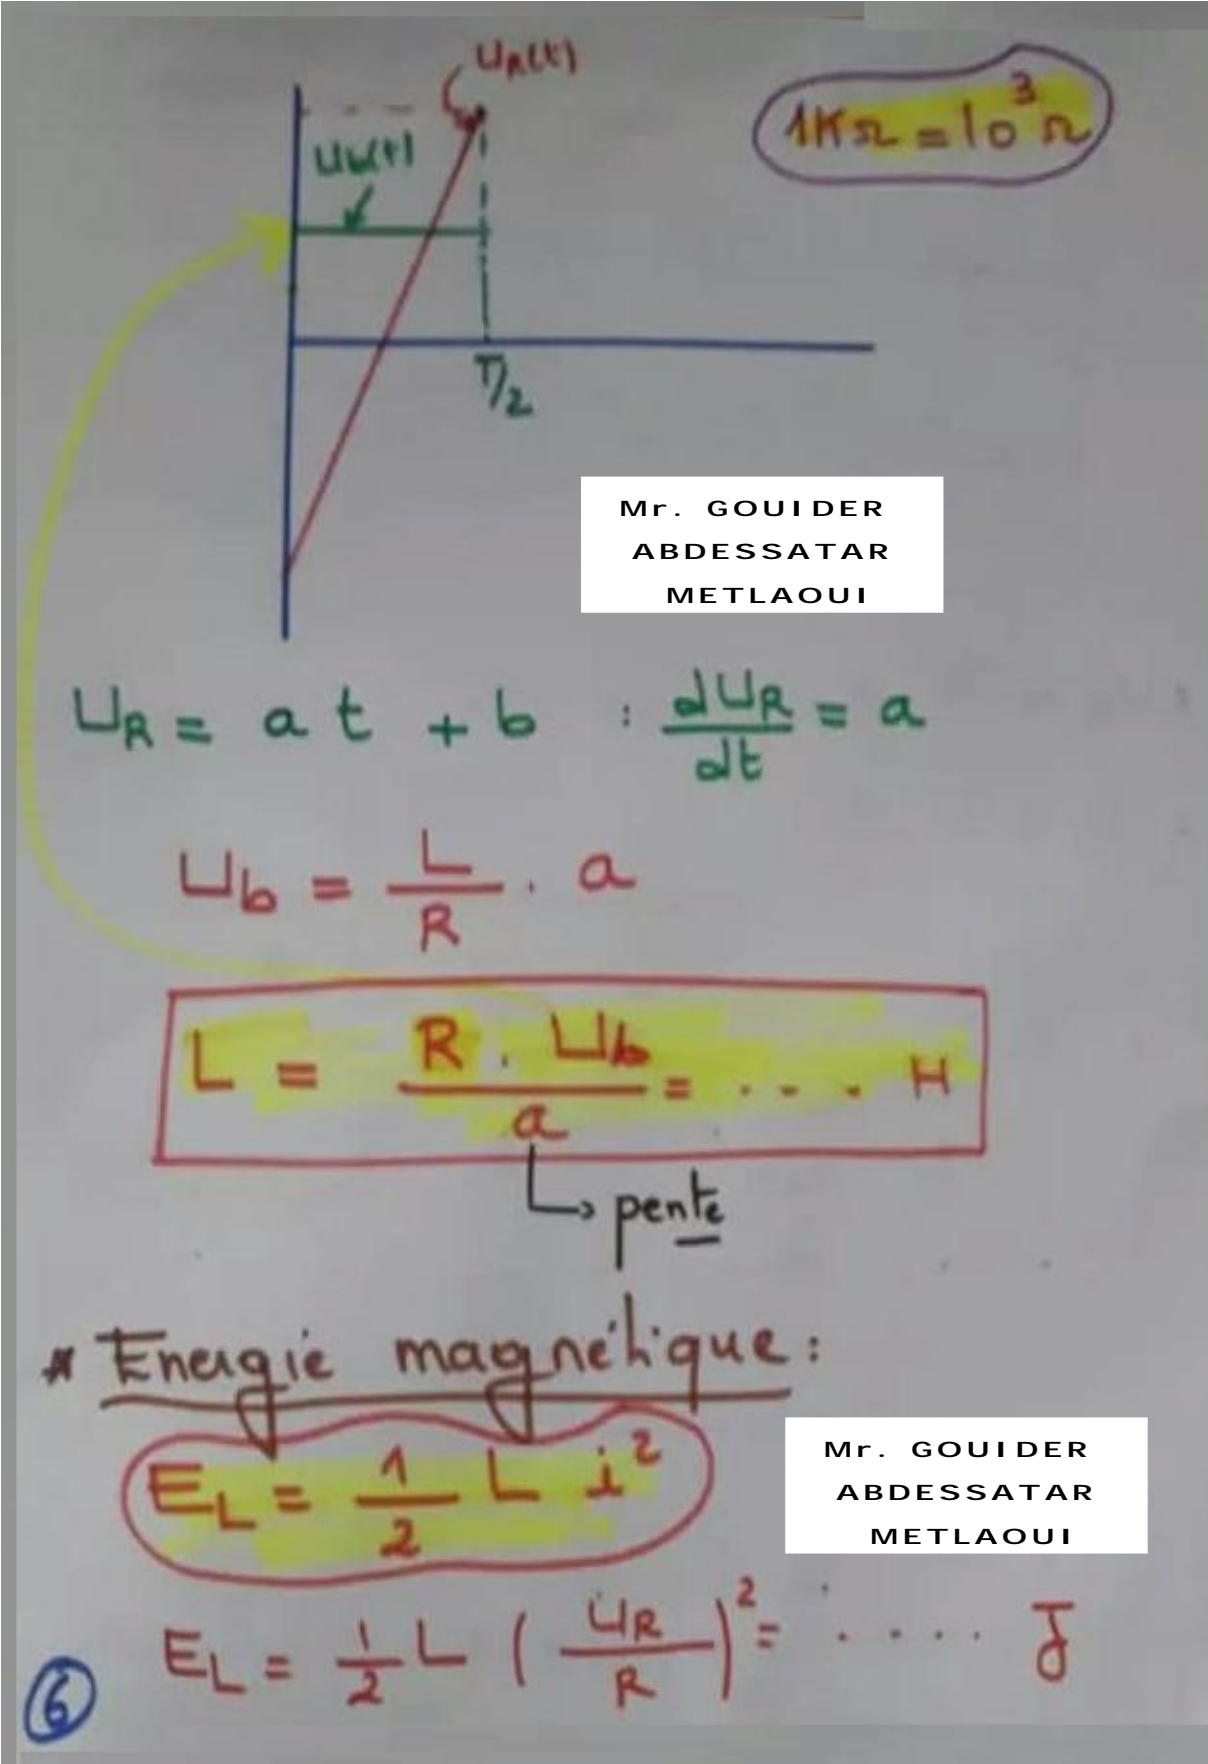 u_R(t)
1KΩ = 10³Ω
u_b(t)
T/2
Mr. GOUIDER
ABDESSATAR
METLAOUI
U_R = a t + b : dU_R/dt = a
U_b = L/R . a
L = R . U_b / a = . . . . H
↳ pente
* Energie magnétique :
E_L = 1/2 L i²
Mr. GOUIDER
ABDESSATAR
METLAOUI
E_L = 1/2 L (U_R/R)² = . . . . . J
6